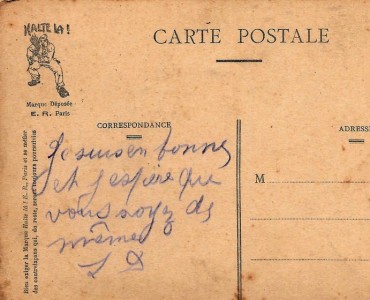 HALTE LÀ!
CARTE POSTALE
Marque Déposée
E. R. Paris
CORRESPONDANCE
ADRESSE
Je suis en bonne
et j'espère que
vous soyez de
même
L D
M
Bien exiger la Marque Halte là ! E. R., Paris et se méfier
des contrefaçons qui, du reste, seront toujours poursuivies